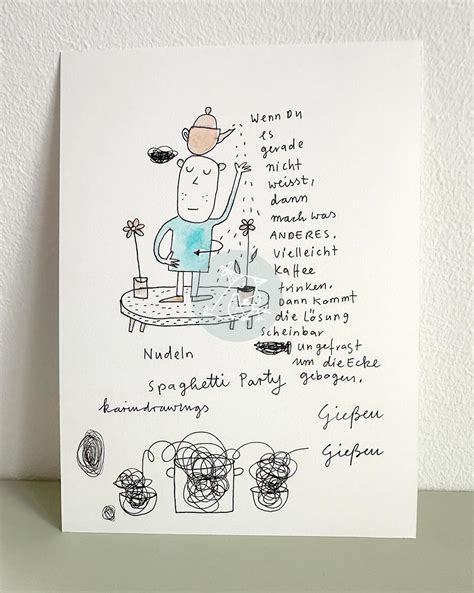 Wenn Du
es
gerade
nicht
weisst,
dann
mach was
ANDERES.
Vielleicht
Kaffee
trinken.
Dann kommt
die Lösung
scheinbar
ungefragt
um die Ecke
gebogen.
Nudeln
Spaghetti Party
karindrawings
Gießen
Gießen